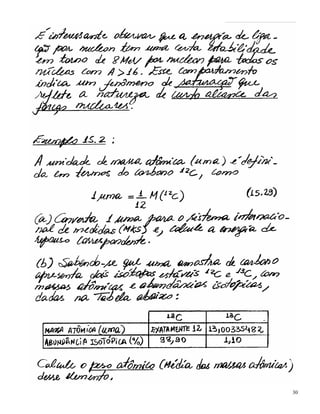 É interessante observar que a energia de liga-
ção por nucleon tem uma certa estabilidade
em torno de 8 MeV por nucleon para todos os
núcleos com A > 16. Esse comportamento
indica um fenômeno de saturação que
reflete a natureza de curto alcance das
forças nucleares.
Exemplo 15.2 :
A unidade de massa atômica (uma) é defini-
da em termos do carbono ¹²C, como
1 uma = 1/12 M(¹²C) (15.29)
(a) Converta 1 uma para o sistema internacio-
nal de medidas (MKS) e, calcule a energia de
repouso correspondente.
(b) Sabendo-se que uma amostra de carbono
apresenta dois isótopos estáveis ¹²C e ¹³C, com
massas atômicas e abundâncias isotópicas,
dadas na Tabela abaixo :
¹²C ¹³C
MASSA ATÔMICA (uma) EXATAMENTE 12 13,00335482
ABUNDÂNCIA ISOTÓPICA (%) 98,90 1,10
Calcule o peso atômico (média das massas atômicas)
desse elemento.
30